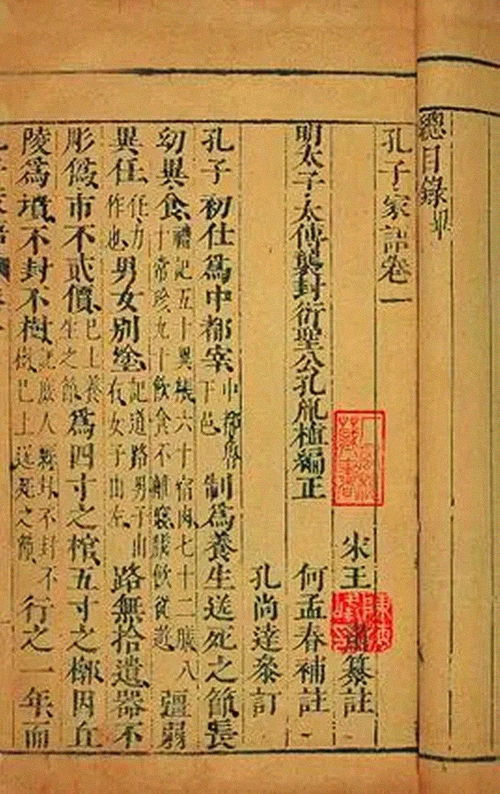 總目錄畢
孔子家語卷一
宋王 纂註
明太子太傅襲封衍聖公孔胤植編正 何孟春補註
孔尚達叅訂
孔子初仕爲中都宰中都魯下邑制爲養生送死之節長
幼異食禮記五十異粻六十宿肉七十二膳八十常珍九十飲食不離寢膳飲從遊彊弱
異任任力作也男女別塗記道路男子由右女子由左路無拾遺器不
彫僞市不貳價已上養生之節爲四寸之棺五寸之槨因丘
陵爲墳不封不樹記庶人縣封不封不樹已上送死之節行之一年而